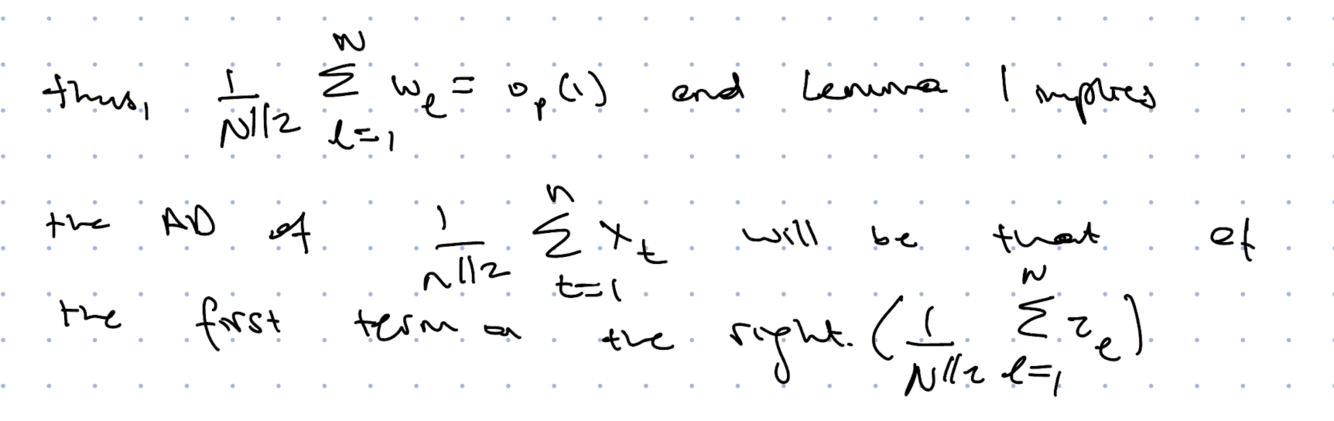 thus, $\frac{1}{N^{1/2}} \sum_{l=1}^{N} w_l = o_p(1)$ and Lemma 1 implies
the AD of $\frac{1}{n^{1/2}} \sum_{t=1}^{n} x_t$ will be that of
the first term on the right. $\left( \frac{1}{N^{1/2}} \sum_{l=1}^{N} z_l \right)$